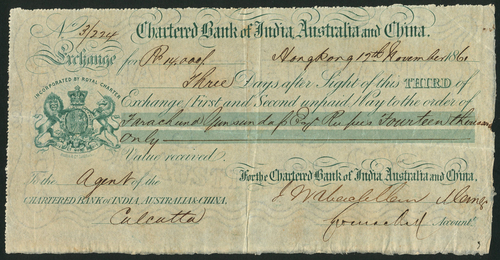 Chartered Bank of India, Australia and China.
No. 3/224
Exchange for Rs 14,000/- Hongkong 17th November 186
Three Days after Sight of this THIRD of
Exchange, first and Second unpaid Pay to the order of
Rupees Fourteen thousand
only
Value received.
INCORPORATED BY ROYAL CHARTER
To the Agent of the
CHARTERED BANK OF INDIA, AUSTRALIA & CHINA,
Calcutta
For the Chartered Bank of India, Australia and China.
Accountt.